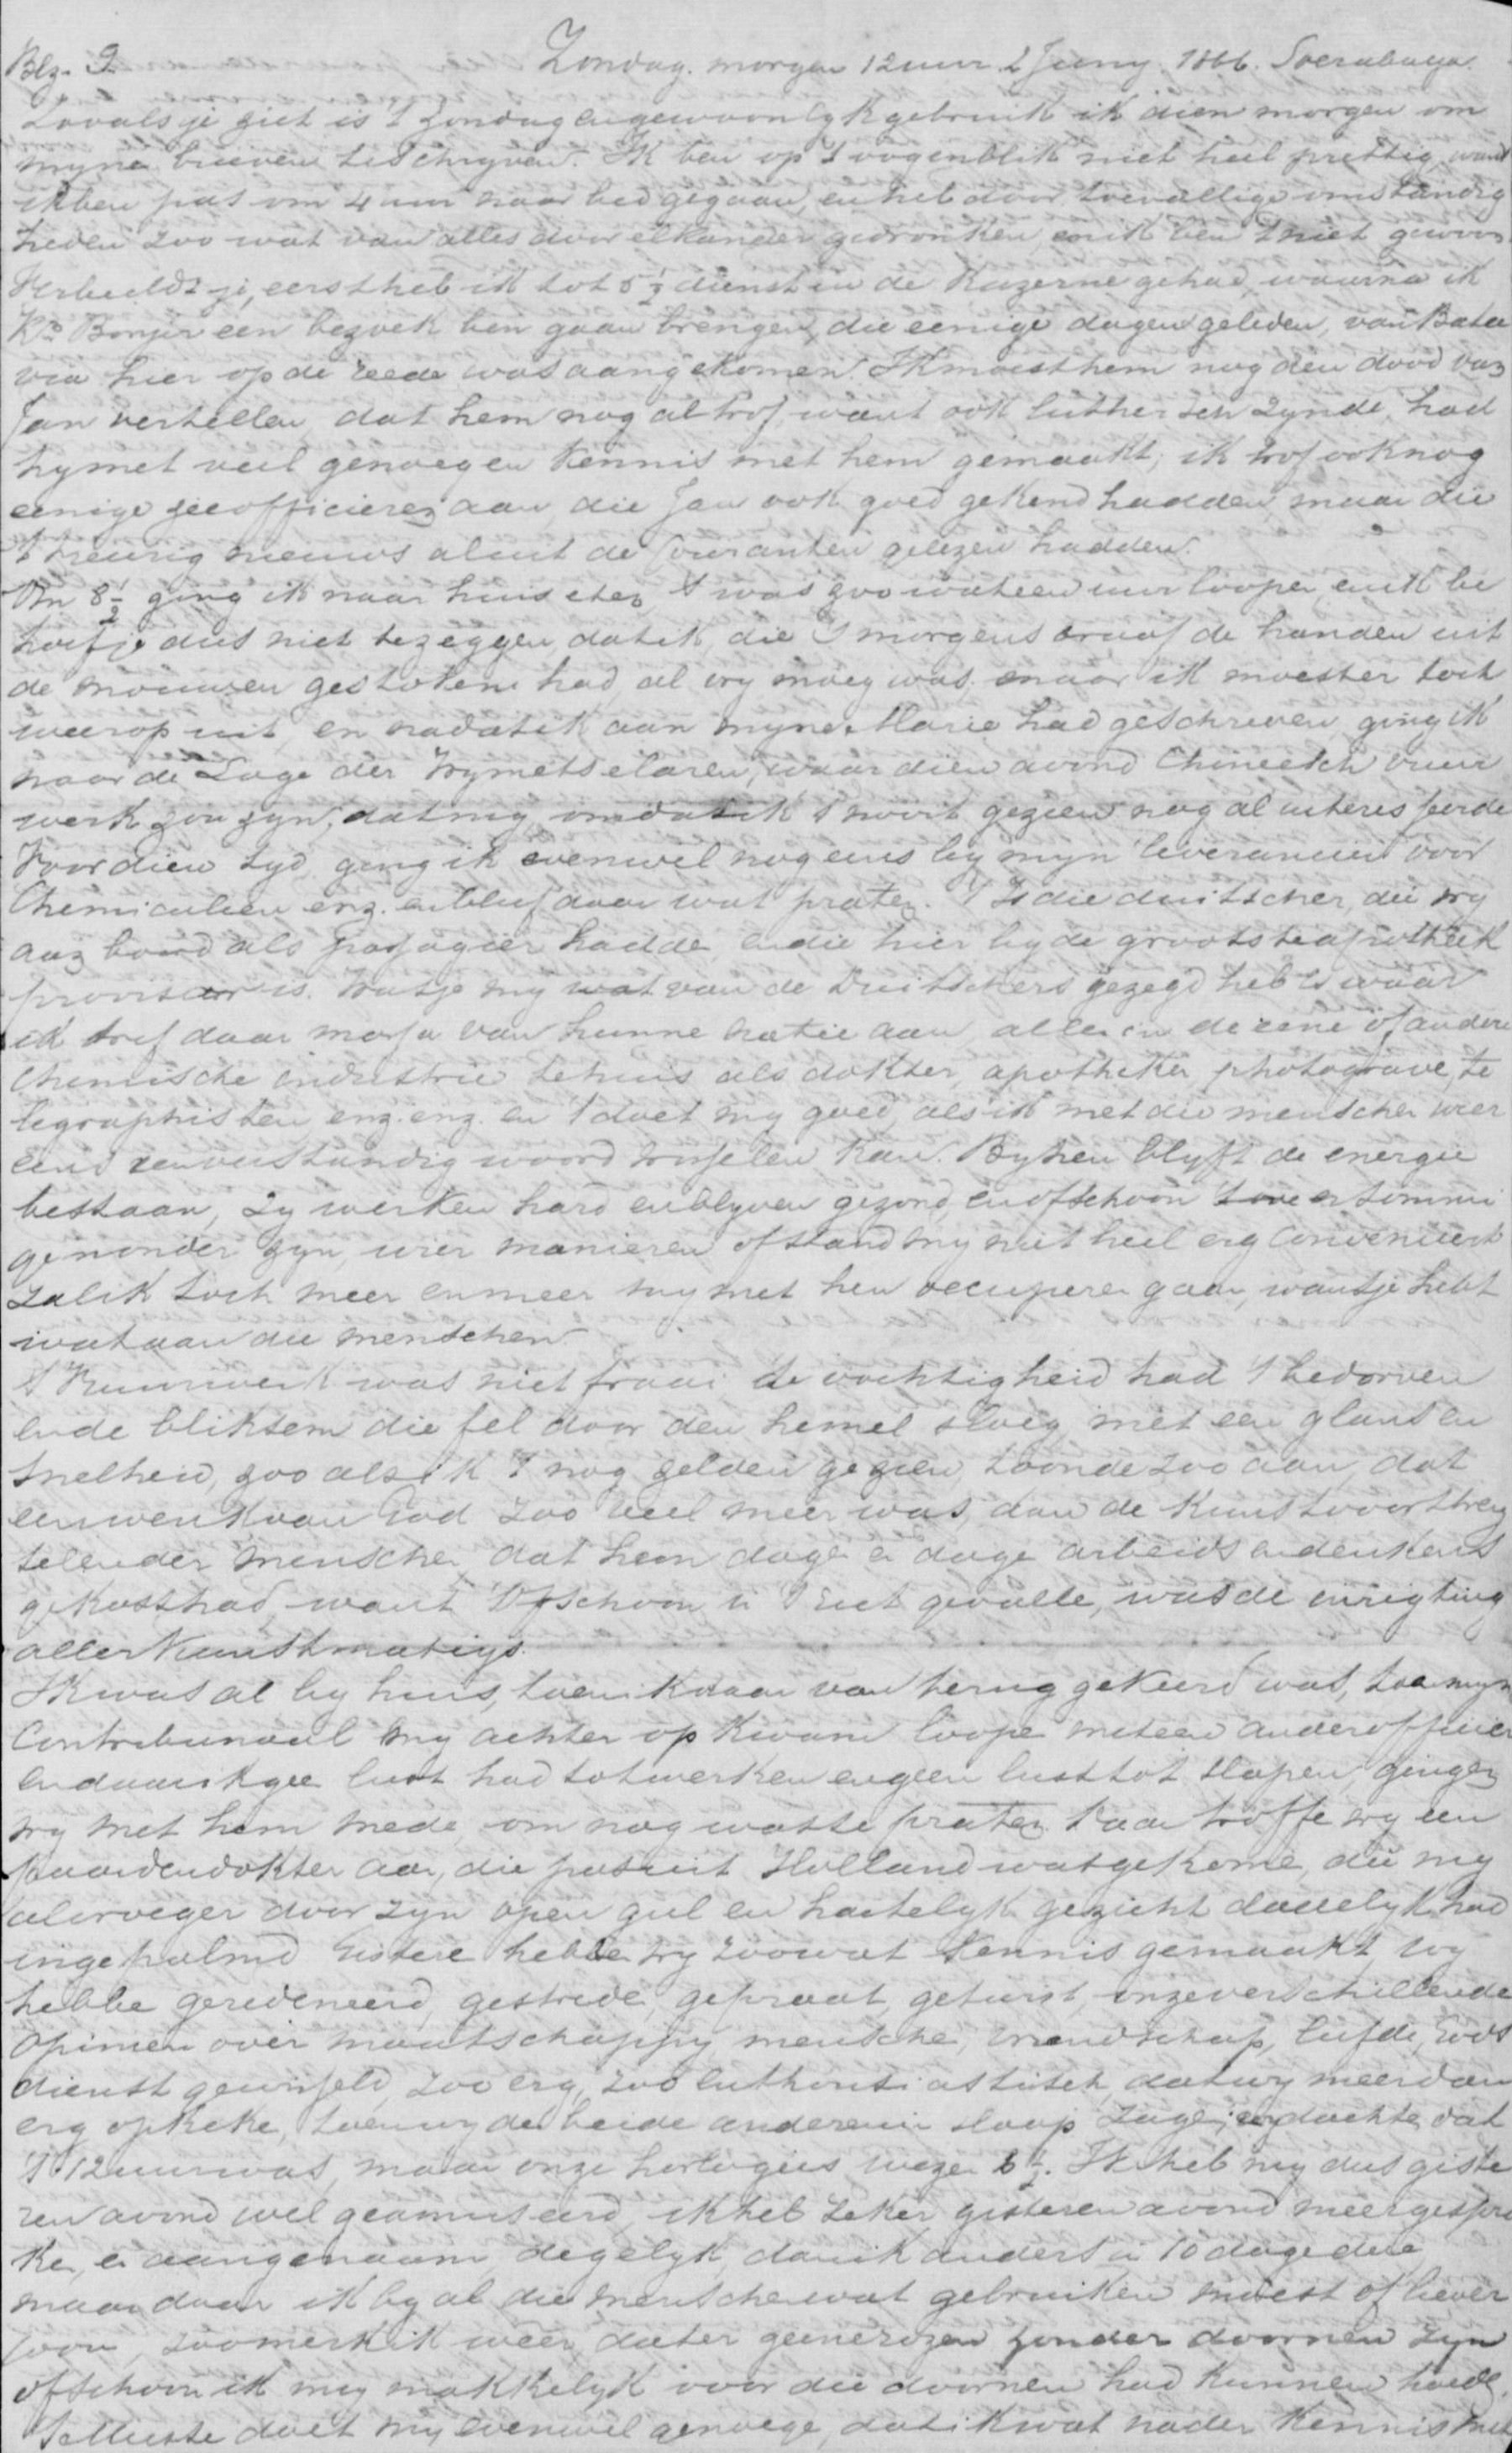 Blz. 9. Zondag. morgen 12 uur 2 Juny. 1866. Soerabaya.
Zooals je ziet is 't Zondag en gewoonlyk gebruik ik dien morgen om
myne brieven te schryven. Ik ben op 't oogenblik niet heel prettig, want
ik ben pas om 4 uur naar bed gegaan, en heb door toevallige omstandig
heden zoo wat van alles door elkander gedronken, en ik ben 't niet gewoon
Verbeeldt je, eerst heb ik tot 5 1/2 dienst in de Kazerne gehad, waarna ik
Bonjer een bezoek ben gaan brengen, die eenige dagen geleden, van Bata
via hier op de reede was aangekomen. Ik moest hem nog den dood van
Jan vertellen, dat hem nog al trof, want ook luthersch zynde, had
hy met veel genoegen kennis met hem gemaakt; ik trof ook nog
eenige zeeofficieren aan, die Jan ook goed gekend hadden, maar die
't treurig nieuws al uit de Couranten gelezen hadden.
Om 8 1/2 ging ik naar huis eten, 't was zoo wat een uur loopen, en ik be
hoef je dus niet te zeggen, dat ik, die 's morgens braaf de handen uit
de mouwen gestoken had, al vry moeg was. maar ik moest er toch
weer op uit, en nadat ik aan myne Marie had geschreven, ging ik
naar de Loge der Vrymetselaren, waar dien avond Chineesch vuur
werk zou zyn, dat my omdat ik 't nooit gezien nog al interesseerde
Voor dien tyd, ging ik evenwel nog eens by myn leverancier voor
Chemicalien enz. en bleef daar wat praten. 't Is die duitscher, die wy
aan boord als passagier hadde, en die hier by de grootste apotheek
provisor is. Wat je my wat van de Duitschers gezegd heb is waar
ik trof daar massa van hunne natie aan, allen in de eene of andere
Chemische industrie tehuis als dokter, apotheker, photograve, te
legraphisten enz. enz. en 't doet my goed, als ik met die menschen weer
eens een verstandig woord wisselen kan. By hen blyft de energie
bestaan, Zy werken hard en blyven gezond, en ofschoon er sommi
gen onder zyn, wier manieren of stand my niet heel erg Convenieert
zal ik toch meer en meer my met hen occuperen gaan, want je hebt
wat aan die menschen.
't Vuurwerk was niet fraai de vochtigheid had 't bedorven
en de bliksem die fel door den hemel sloeg met een glans en
snelheid, zoo als ik 't nog zelden gezien, toonde zoo aan, dat
een werk van God zoo veel meer was, dan de Kunst voortbreng
selen der menschen, dat hem dage en dage arbeids en denkens
gekost had, want Ofschoon in 't niet gevalle, was de inrigting
aller Kunstmatigst.
Ik was al by huis, toen ik daar van terug gekeerd was, toen myn
Contrebuneel my achter op kwam loope met een ander officier
en daar ik gee lust had tot werken en geen lust tot slapen, gingen
wy met hem mede, om nog wat te praten. Daar troffe wy een
paardendokter aan, die pas uit Holland was gekome, die my
al vroeger door zyn open gul en hartelyk gezicht dadelyk had
ingepalmd. Gistere hebbe wy zoowat Kennis gemaakt, wy
hebbe geredeneerd, gestrede, gepraat, getwist, onze verschillende
Opinien over maatschappy, mensche, vriendschap, liefde, Gods
dienst gewisseld, zoo erg, zoo enthousiastisch, dat wy meer dan
erg opkeke, toen wy de beide anderen in slaap zage; wy dachte, dat
't 12 uur was, maar onze horlogies weze 3 1/2. Ik heb my dus giste
ren avond wel geamuseerd, ik heb zeker gisteren avond meer gespro
ke, en aangenaam, degelyk, dan ik anders in 10 dage doe
maar daar ik by al die mensche wat gebruiken moest of liever
zoo merk ik weer, dat er geene rozen zonder doornen zyn
ofschoon ik my makkelyk voor die doornen had kunnen hoede.
't Mieste doet my evenwel genoege, dat ik wat nader Kennis met